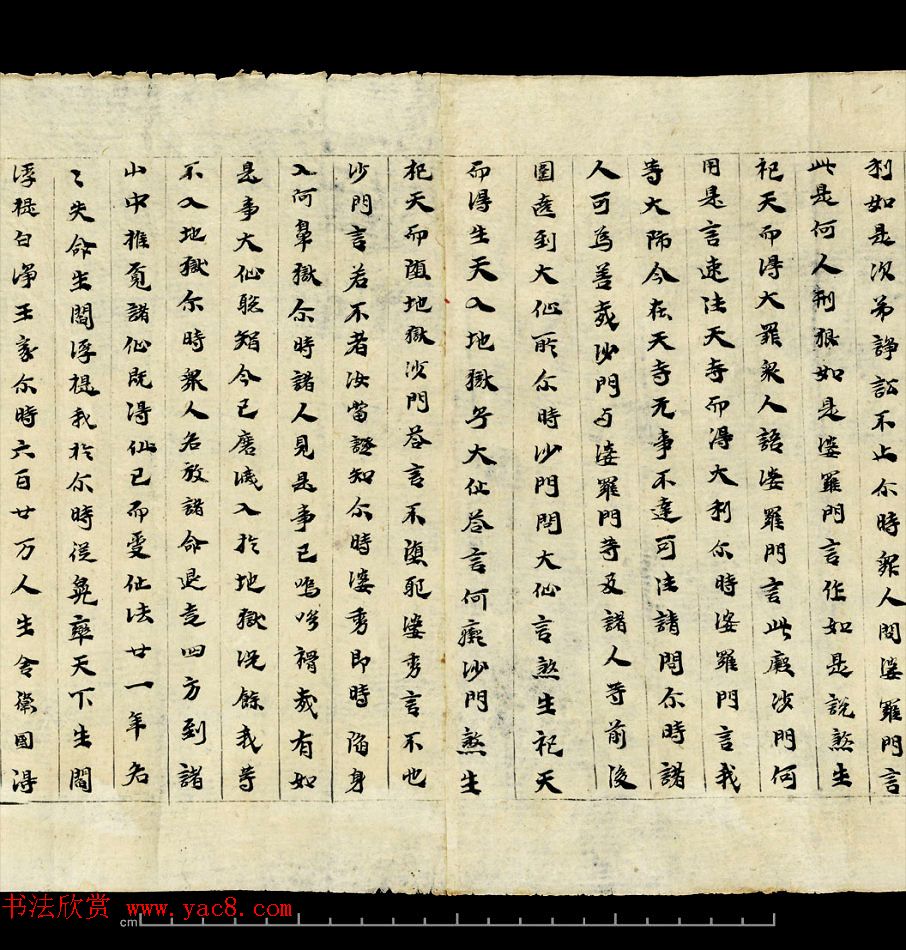 利如是次弟諍訟不止尒時衆人問婆羅門言
此是何人剃狼如是婆羅門言作如是說煞生
祀天而得大罪衆人語婆羅門言此癡沙門何
用是言速法天寺而得大利尒時婆羅門言我
等大師今在天寺无事不達可往請問尒時諸
人可為善哉沙門与婆羅門等及諸人等前後
圍遶到大仙所尒時沙門問大仙言煞生祀天
而得生天入地獄乎大仙荅言何癡沙門煞生
祀天而墮地獄沙門荅言不墮耶婆秀言不也
沙門言若不者汝當證知尒時婆秀即時陷身
入阿鼻獄尒時諸人見是事已嗚呼禍哉有如
是事大仙聡智今已磨滅入於地獄況餘我等
不入地獄尒時衆人各放諸命退走四方到諸
山中推覓諸仙既得仙已而受仙法廿一年各
〻失命生閻浮提我於尒時従兜率天下生閻
浮提白淨王家尒時六百廿万人生舍衛國得
书法欣赏 www.yac8.com
cm